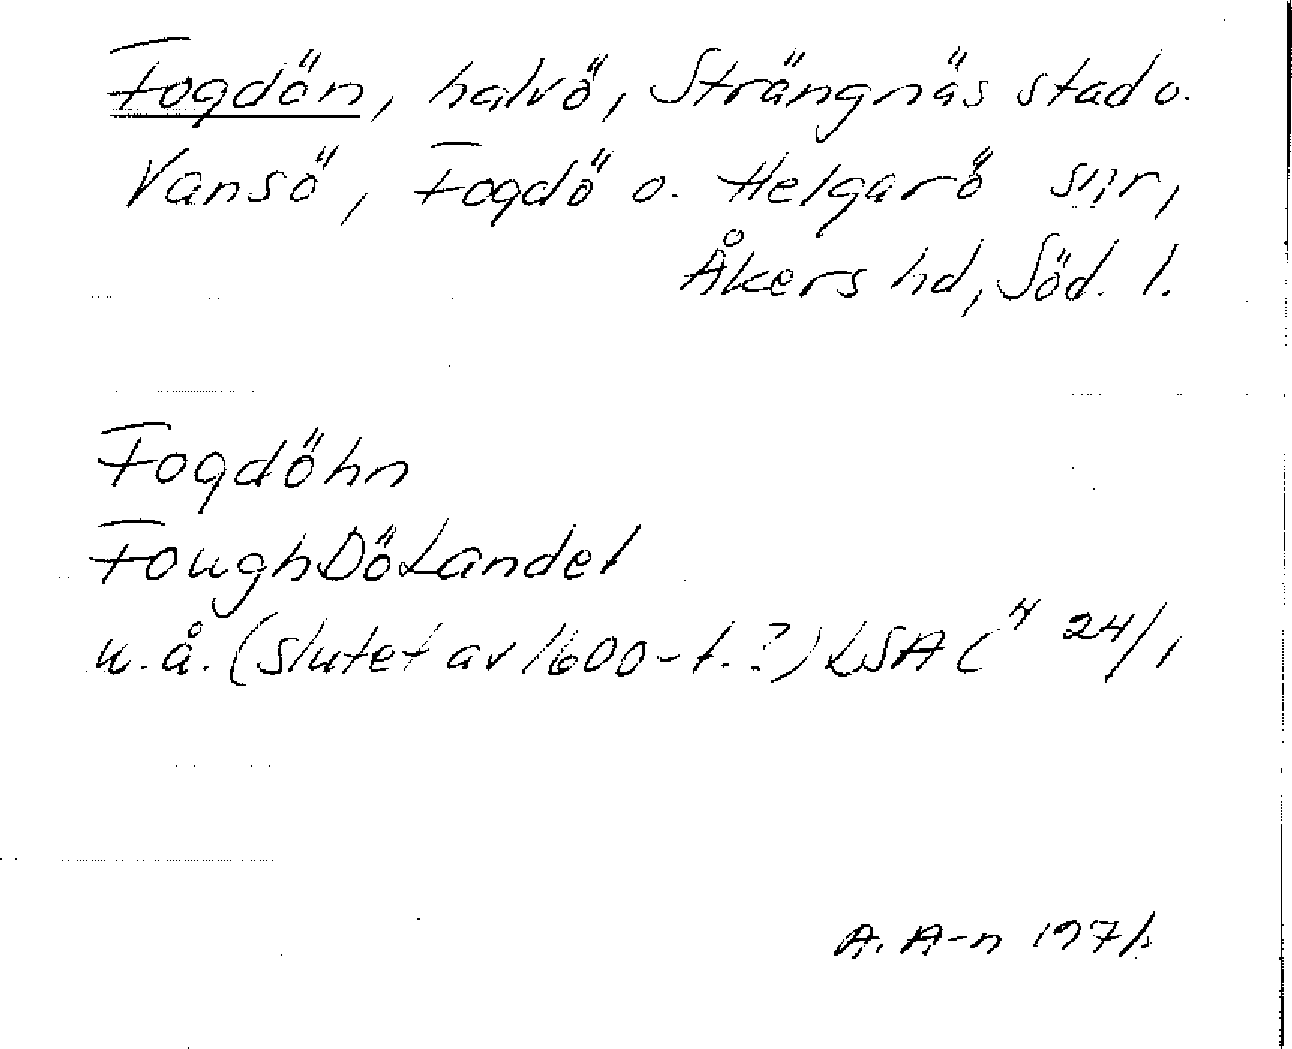 Fogdön, halvö, Strängnäs stad o.
Vansö, Fogdö o. Helgarö snr,
Åkers hd, Söd. l.
Fogdöhn
FoughDöLandet
u.å. (slutet av 1600-t.?) LSA C4 24/1
A. A-n 1971.